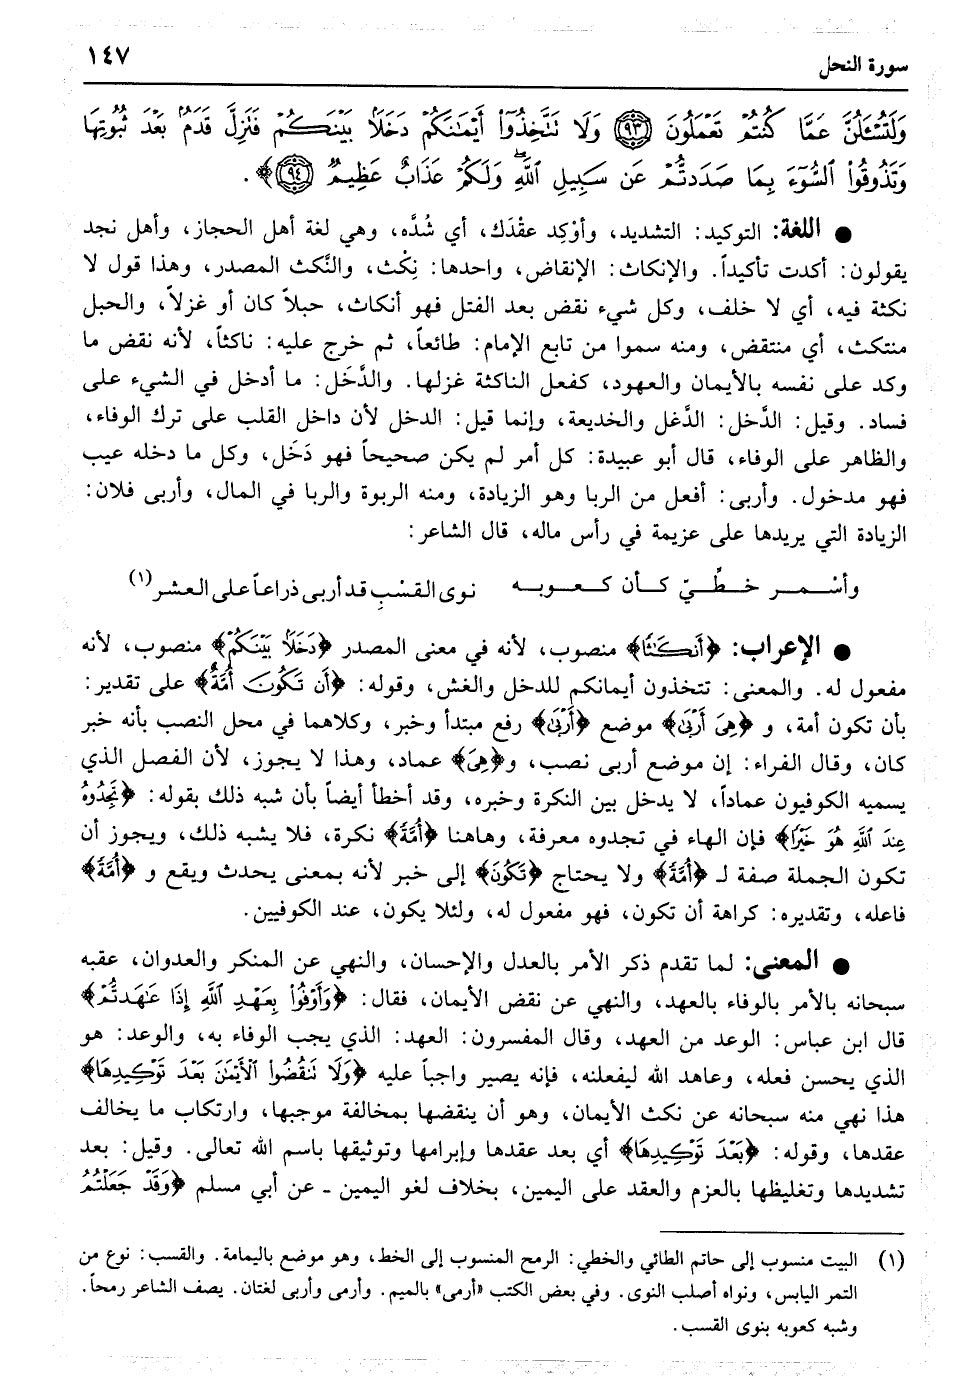 سورة النحل
١٤٧
وَلَتُسْـَٔلُنَّ عَمَّا كُنتُمْ تَعْمَلُونَ ﴿٩٣﴾ وَلَا تَتَّخِذُوٓا۟ أَيْمَـٰنَكُمْ دَخَلًۢا بَيْنَكُمْ فَتَزِلَّ قَدَمٌۢ بَعْدَ ثُبُوتِهَا
وَتَذُوقُوا۟ ٱلسُّوٓءَ بِمَا صَدَدتُّمْ عَن سَبِيلِ ٱللَّهِ ۖ وَلَكُمْ عَذَابٌ عَظِيمٌ ﴿٩٤﴾﴾ .
● اللغة: التوكيد: التشديد، وأوْكِد عقْدَك، أي شُدَّه، وهي لغة أهل الحجاز، وأهل نجد
يقولون: أكدت تأكيداً. والإنكاث: الإنقاض، واحدها: نِكْث، والنَّكث المصدر، وهذا قول لا
نكثة فيه، أي لا خلف، وكل شيء نقض بعد الفتل فهو أنكاث، حبلاً كان أو غزلاً، والحبل
منتكث، أي منتقض، ومنه سموا من تابع الإمام: طائعاً، ثم خرج عليه: ناكثاً، لأنه نقض ما
وكد على نفسه بالأيمان والعهود، كفعل الناكثة غزلها. والدَّخَل: ما أدخل في الشيء على
فساد. وقيل: الدَّخل: الدَّغل والخديعة، وإنما قيل: الدخل لأن داخل القلب على ترك الوفاء،
والظاهر على الوفاء، قال أبو عبيدة: كل أمر لم يكن صحيحاً فهو دَخَل، وكل ما دخله عيب
فهو مدخول. وأربى: أفعل من الربا وهو الزيادة، ومنه الربوة والربا في المال، وأربى فلان:
الزيادة التي يريدها على عزيمة في رأس ماله، قال الشاعر:
وأسْـمـر خـطِّـيّ كـأن كـعـوبـه نوى القسْبِ قد أربى ذراعاً على العشر(١)
● الإعراب: ﴿أَنكَـٰثًا﴾ منصوب، لأنه في معنى المصدر ﴿دَخَلًۢا بَيْنَكُمْ﴾ منصوب، لأنه
مفعول له. والمعنى: تتخذون أيمانكم للدخل والغش، وقوله: ﴿أَن تَكُونَ أُمَّةٌ﴾ على تقدير:
بأن تكون أمة، و ﴿هِىَ أَرْبَىٰ﴾ موضع ﴿أَرْبَىٰ﴾ رفع مبتدأ وخبر، وكلاهما في محل النصب بأنه خبر
كان، وقال الفراء: إن موضع أربى نصب، و﴿هِىَ﴾ عماد، وهذا لا يجوز، لأن الفصل الذي
يسميه الكوفيون عماداً، لا يدخل بين النكرة وخبره، وقد أخطأ أيضاً بأن شبه ذلك بقوله: ﴿تَجِدُوهُ
عِندَ ٱللَّهِ هُوَ خَيْرًا﴾ فإن الهاء في تجدوه معرفة، وهاهنا ﴿أُمَّةٌ﴾ نكرة، فلا يشبه ذلك، ويجوز أن
تكون الجملة صفة لـ ﴿أُمَّةٌ﴾ ولا يحتاج ﴿تَكُونَ﴾ إلى خبر لأنه بمعنى يحدث ويقع و ﴿أُمَّةٌ﴾
فاعله، وتقديره: كراهة أن تكون، فهو مفعول له، ولئلا يكون، عند الكوفيين.
● المعنى: لما تقدم ذكر الأمر بالعدل والإحسان، والنهي عن المنكر والعدوان، عقبه
سبحانه بالأمر بالوفاء بالعهد، والنهي عن نقض الأيمان، فقال: ﴿وَأَوْفُوا۟ بِعَهْدِ ٱللَّهِ إِذَا عَـٰهَدتُّمْ﴾
قال ابن عباس: الوعد من العهد، وقال المفسرون: العهد: الذي يجب الوفاء به، والوعد: هو
الذي يحسن فعله، وعاهد الله ليفعلنه، فإنه يصير واجباً عليه ﴿وَلَا تَنقُضُوا۟ ٱلْأَيْمَـٰنَ بَعْدَ تَوْكِيدِهَا﴾
هذا نهي منه سبحانه عن نكث الأيمان، وهو أن ينقضها بمخالفة موجبها، وارتكاب ما يخالف
عقدها، وقوله: ﴿بَعْدَ تَوْكِيدِهَا﴾ أي بعد عقدها وإبرامها وتوثيقها باسم الله تعالى. وقيل: بعد
تشديدها وتغليظها بالعزم والعقد على اليمين، بخلاف لغو اليمين ـ عن أبي مسلم ﴿وَقَدْ جَعَلْتُمُ
(١) البيت منسوب إلى حاتم الطائي والخطي: الرمح المنسوب إلى الخط، وهو موضع باليمامة. والقسب: نوع من
التمر اليابس، ونواه أصلب النوى. وفي بعض الكتب «أرمى» بالميم. وأرمى وأربى لغتان. يصف الشاعر رمحاً.
وشبه كعوبه بنوى القسب.